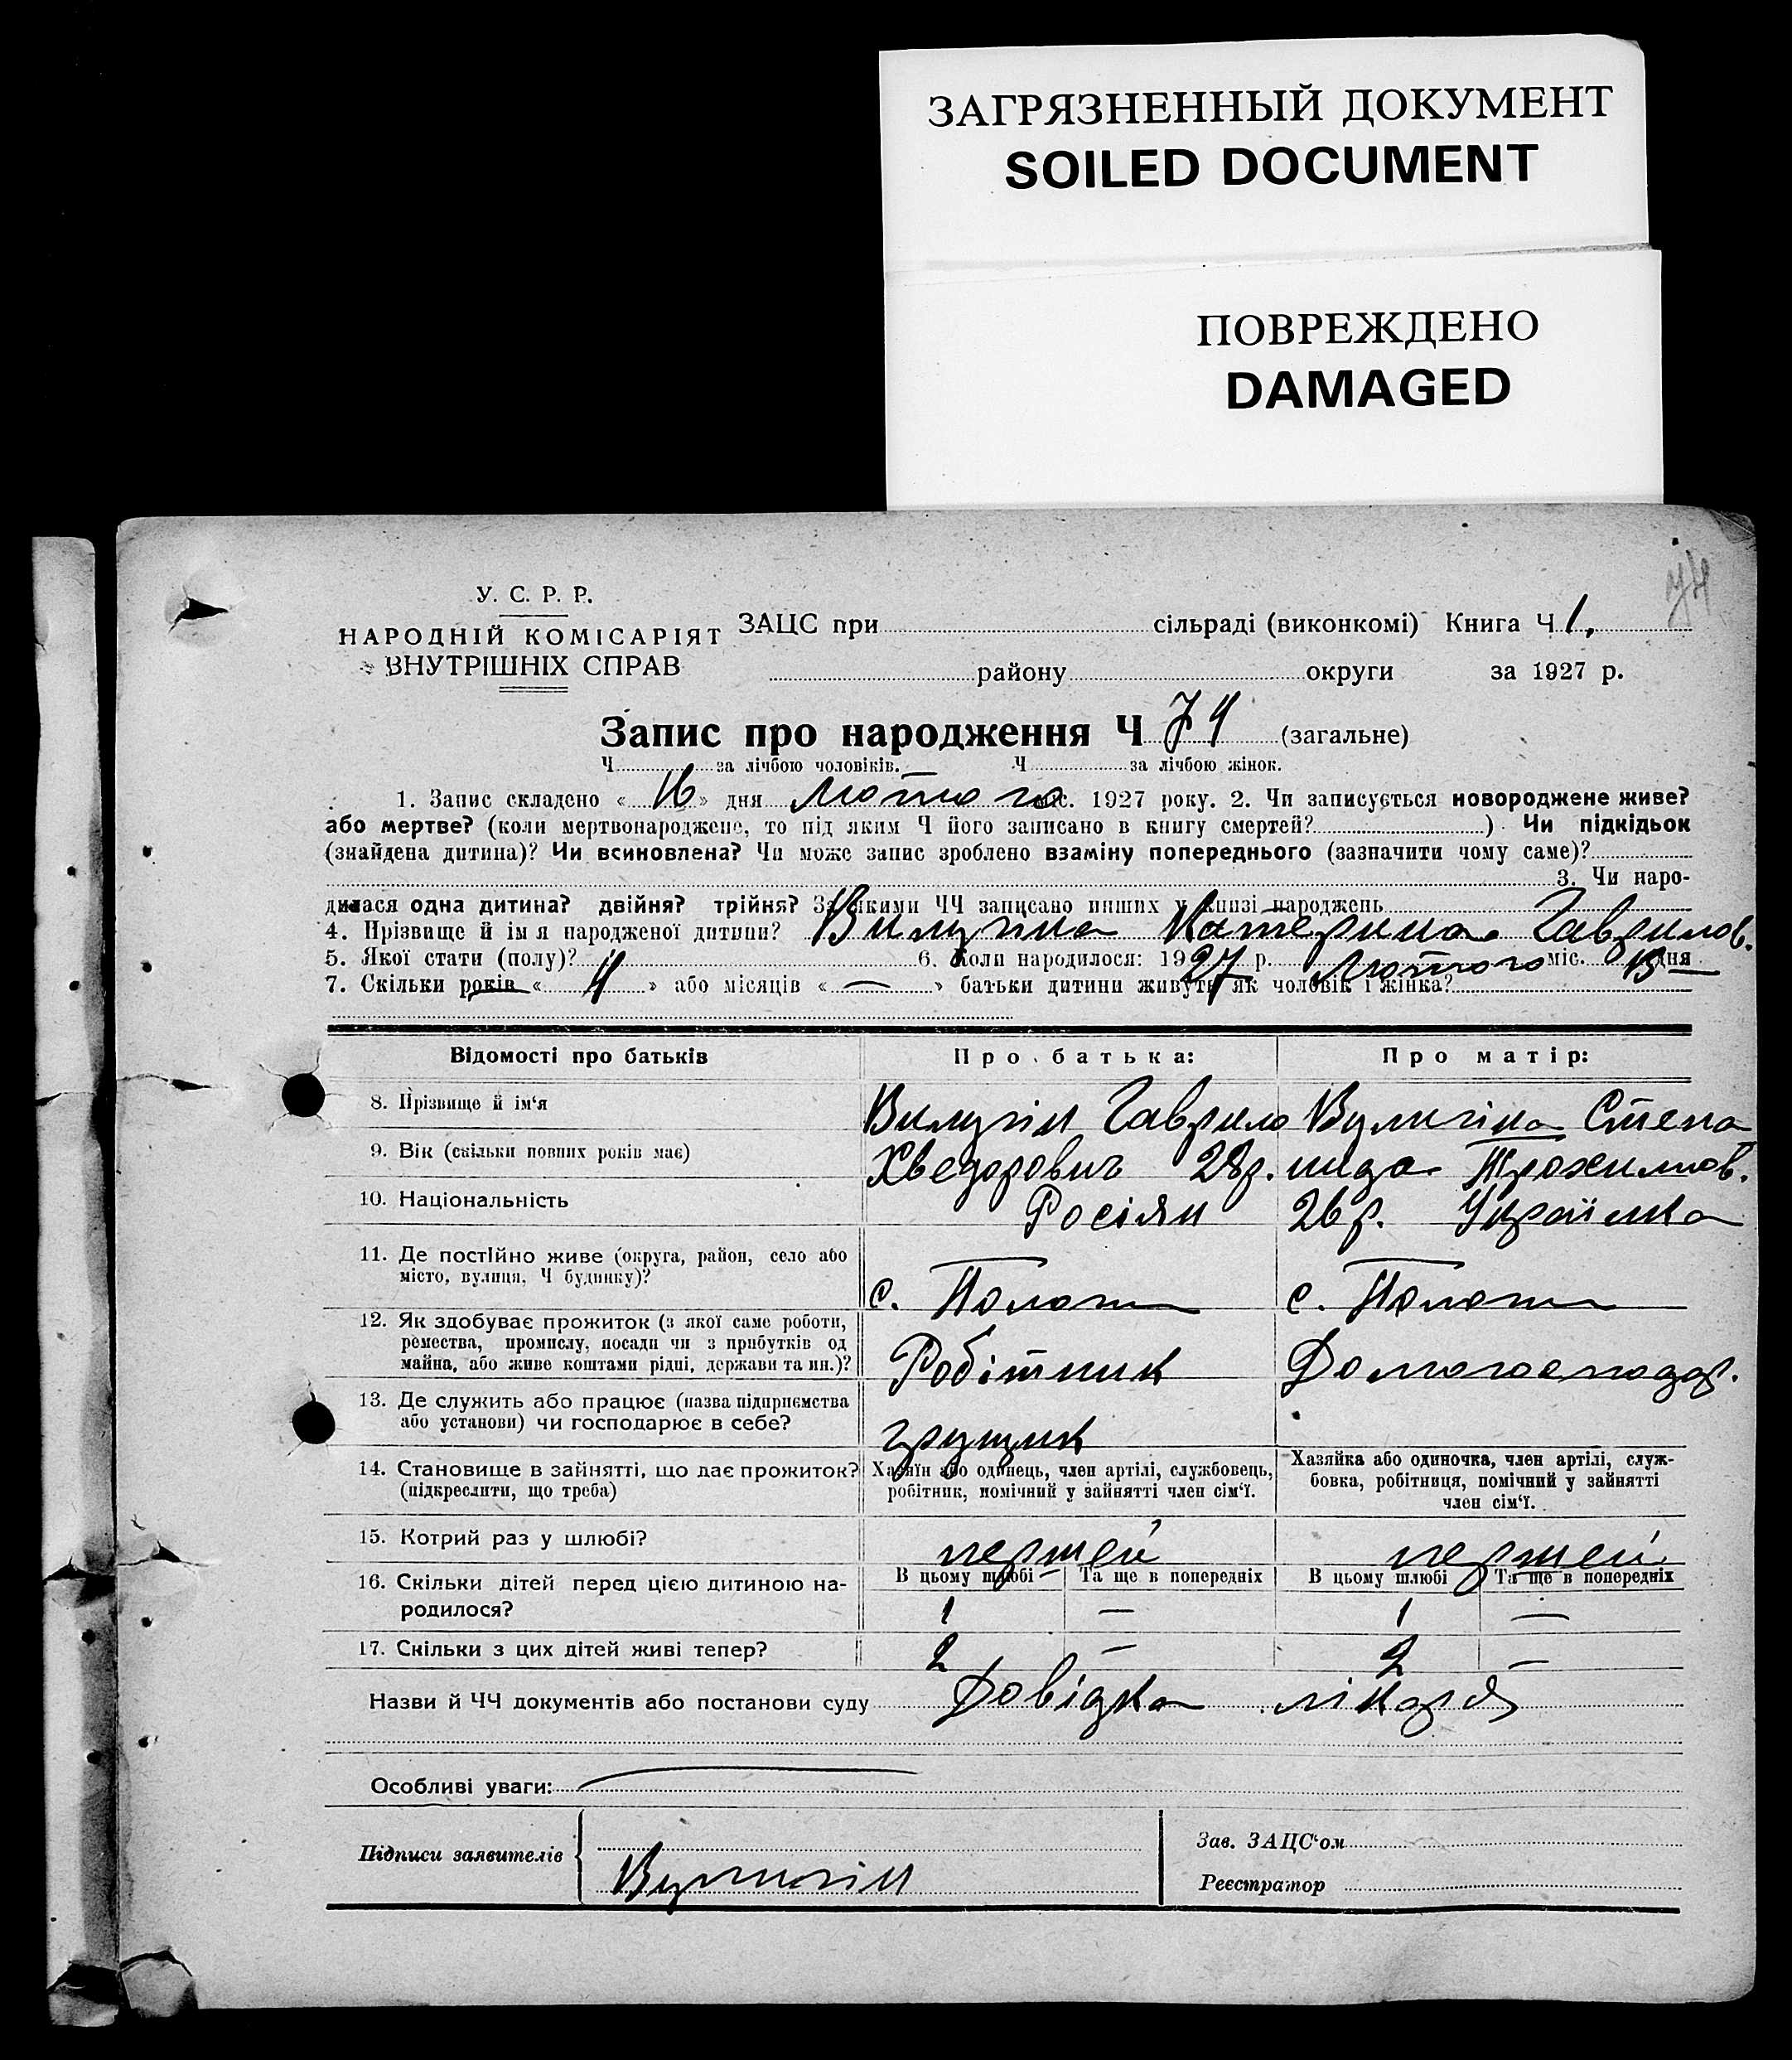 ЗАГРЯЗНЕННЫЙ ДОКУМЕНТ
SOILED DOCUMENT
ПОВРЕЖДЕНО
DAMAGED
У. С. Р. Р.
НАРОДНІЙ КОМІСАРІЯТ
ВНУТРІШНІХ СПРАВ
ЗАЦС при сільраді (виконкомі) Книга Ч 1.
району округи за 1927 р.
Запис про народження Ч 74 (загальне)
Ч за лічбою чоловіків. Ч за лічбою жінок.
1. Запис складено « 16 » дня Лютого міс. 1927 року. 2. Чи записується новороджене живе?
або мертве? (коли мертвонароджене, то під яким Ч його записано в книгу смертей? ) Чи підкідьок
(знайдена дитина)? Чи всиновлена? Чи може запис зроблено взаміну попереднього (зазначити чому саме)?
3. Чи наро-
дилася одна дитина? двійня? трійня? За якими ЧЧ записано инших у книзі народжень
4. Прізвище й ім я народженої дитини? Катерина Гаврилов.
5. Якої стати (полу)? 6. Коли народилося: 1927 р. Лютого міс. 13 дня
7. Скільки років « 4 » або місяців « — » батьки дитини живуть як чоловік і жінка?
Відомості про батьків
Про батька:
Про матір:
8. Прізвище й ім'я
Гаврило
Степа
9. Вік (скільки повних років має)
Хведорович 28р.
нида Трохимов.
10. Національність
Росіян
26 р. Українка
11. Де постійно живе (округа, район, село або
місто, вулиця, Ч будинку)?
с. Пологи
с. Пологи
12. Як здобуває прожиток (з якої саме роботи,
ремества, промислу, посади чи з прибутків од
майна, або живе коштами рідні, держави та ин.)?
Робітник
Домогосподар.
13. Де служить або працює (назва підприємства
або установи) чи господарює в себе?
грущик
14. Становище в зайнятті, що дає прожиток?
(підкреслити, що треба)
Хазяїн або одинець, член артілі, службовець,
робітник, помічний у зайнятті член сім'ї.
Хазяйка або одиночка, член артілі, служ-
бовка, робітниця, помічний у зайнятті
член сім'ї.
15. Котрий раз у шлюбі?
першей
першей
16. Скільки дітей перед цією дитиною на-
родилося?
В цьому шлюбі Та ще в попередніх
В цьому шлюбі Та ще в попередніх
1 — 1 —
17. Скільки з цих дітей живі тепер?
2 — 2 —
Назви й ЧЧ документів або постанови суду Довідка лікаря
Особливі уваги:
Підписи заявителів
Вулигін
Зав. ЗАЦС'ом
Реєстратор